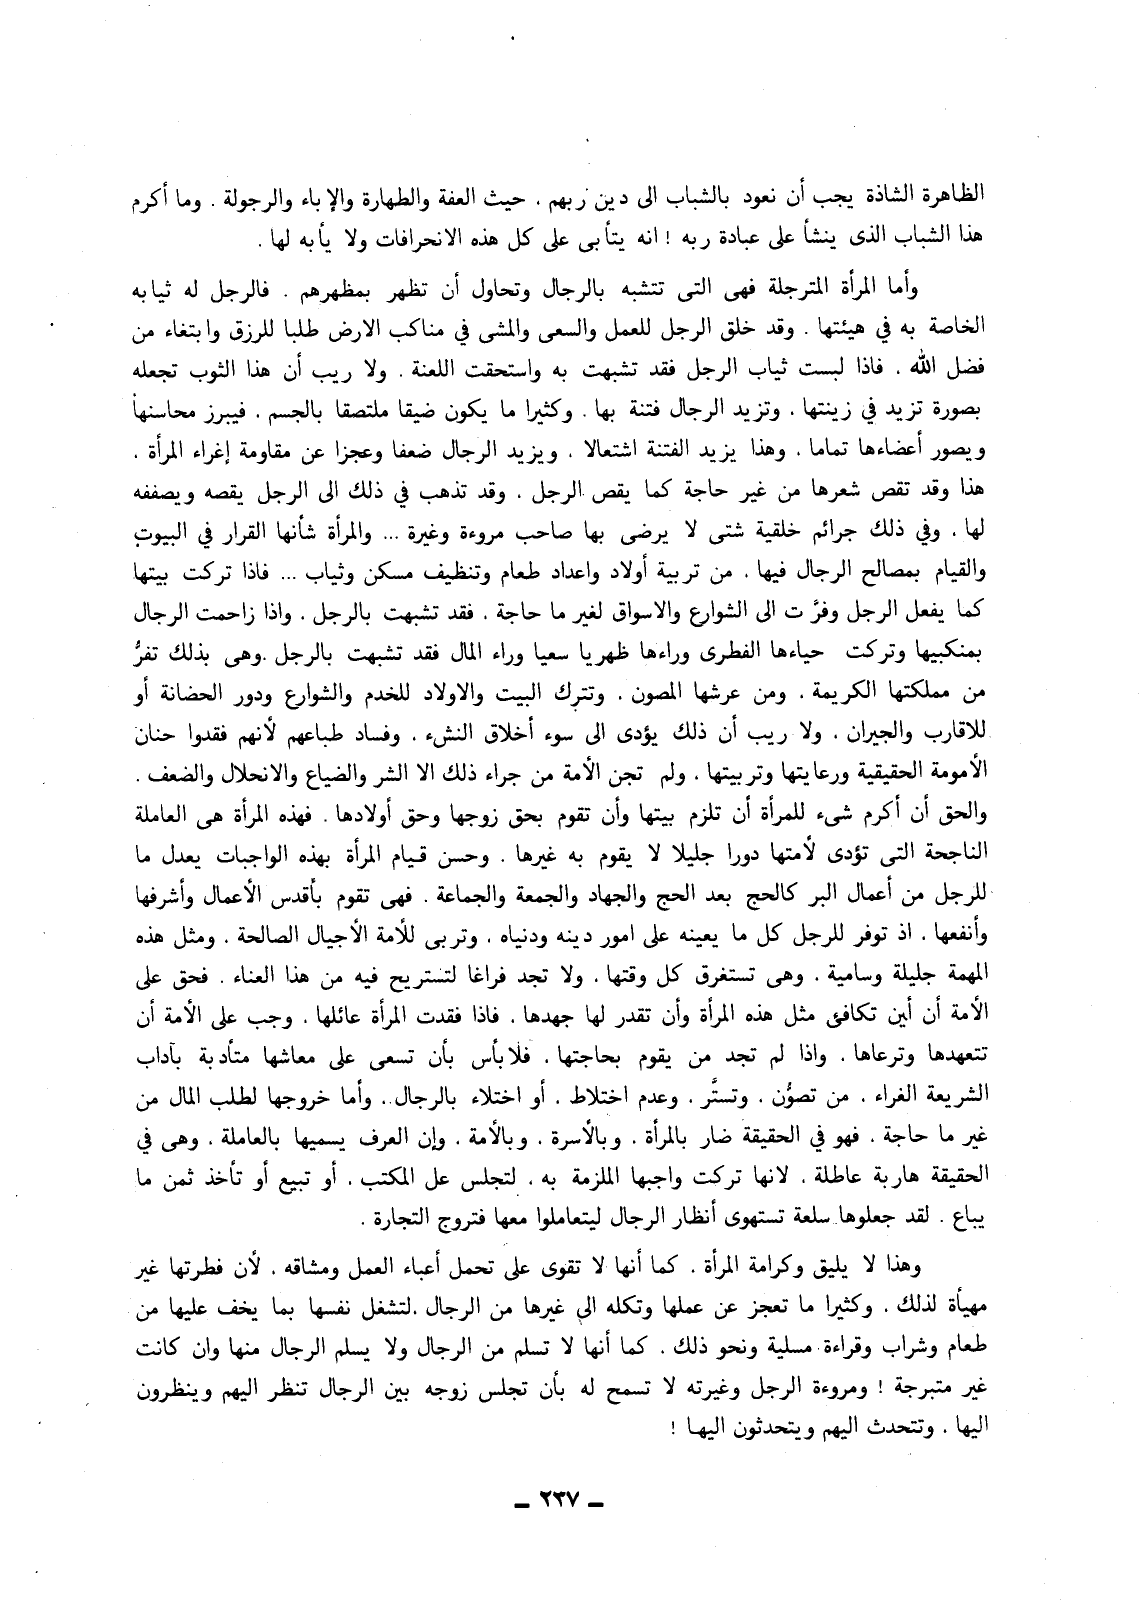 الظاهرة الشاذة يجب أن نعود بالشباب الى دين ربهم . حيث العفة والطهارة والإباء والرجولة . وما أكرم
هذا الشباب الذى ينشأ على عبادة ربه ! انه يتأبى على كل هذه الانحرافات ولا يأبه لها .
وأما المرأة المترجلة فهى التى تتشبه بالرجال وتحاول أن تظهر بمظهرهم . فالرجل له ثيابه
الخاصة به في هيئتها . وقد خلق الرجل للعمل والسعى والمشى في مناكب الارض طلبا للرزق وابتغاء من
فضل الله . فاذا لبست ثياب الرجل فقد تشبهت به واستحقت اللعنة . ولا ريب أن هذا الثوب تجعله
بصورة تزيد في زينتها . وتزيد الرجال فتنة بها . وكثيرا ما يكون ضيقا ملتصقا بالجسم . فيبرز محاسنها
ويصور أعضاءها تماما . وهذا يزيد الفتنة اشتعالا . ويزيد الرجال ضعفا وعجزا عن مقاومة إغراء المرأة .
هذا وقد تقص شعرها من غير حاجة كما يقص الرجل . وقد تذهب في ذلك الى الرجل يقصه ويصففه
لها . وفي ذلك جرائم خلقية شتى لا يرضى بها صاحب مروءة وغيرة ... والمرأة شأنها القرار في البيوت
والقيام بمصالح الرجال فيها . من تربية أولاد واعداد طعام وتنظيف مسكن وثياب ... فاذا تركت بيتها
كما يفعل الرجل وفرَّت الى الشوارع والاسواق لغير ما حاجة . فقد تشبهت بالرجل . واذا زاحمت الرجال
بمنكبيها وتركت حياءها الفطرى وراءها ظهريا سعيا وراء المال فقد تشبهت بالرجل .وهى بذلك تفرُّ
من مملكتها الكريمة . ومن عرشها المصون . وتترك البيت والاولاد للخدم والشوارع ودور الحضانة أو
للاقارب والجيران . ولا ريب أن ذلك يؤدى الى سوء أخلاق النشء . وفساد طباعهم لأنهم فقدوا حنان
الأمومة الحقيقية ورعايتها وتربيتها . ولم تجن الأمة من جراء ذلك الا الشر والضياع والانحلال والضعف .
والحق أن أكرم شىء للمرأة أن تلزم بيتها وأن تقوم بحق زوجها وحق أولادها . فهذه المرأة هى العاملة
الناجحة التى تؤدى لأمتها دورا جليلا لا يقوم به غيرها . وحسن قيام المرأة بهذه الواجبات يعدل ما
للرجل من أعمال البر كالحج بعد الحج والجهاد والجمعة والجماعة . فهى تقوم بأقدس الأعمال وأشرفها
وأنفعها . اذ توفر للرجل كل ما يعينه على امور دينه ودنياه . وتربى للأمة الأجيال الصالحة . ومثل هذه
المهمة جليلة وسامية . وهى تستغرق كل وقتها . ولا تجد فراغا لتستريح فيه من هذا العناء . فحق على
الأمة أن أين تكافئ مثل هذه المرأة وأن تقدر لها جهدها . فاذا فقدت المرأة عائلها . وجب على الأمة أن
تتعهدها وترعاها . واذا لم تجد من يقوم بحاجتها . فلا بأس بأن تسعى على معاشها متأدبة بآداب
الشريعة الغراء . من تصوُّن . وتستَّر . وعدم اختلاط . أو اختلاء بالرجال . وأما خروجها لطلب المال من
غير ما حاجة . فهو في الحقيقة ضار بالمرأة . وبالأسرة . وبالأمة . وإن العرف يسميها بالعاملة . وهى في
الحقيقة هاربة عاطلة . لانها تركت واجبها الملزمة به . لتجلس عل المكتب . أو تبيع أو تأخذ ثمن ما
يباع . لقد جعلوها سلعة تستهوى أنظار الرجال ليتعاملوا معها فتروج التجارة .
وهذا لا يليق وكرامة المرأة . كما أنها لا تقوى على تحمل أعباء العمل ومشاقه . لأن فطرتها غير
مهيأة لذلك . وكثيرا ما تعجز عن عملها وتكله الى غيرها من الرجال .لتشغل نفسها بما يخف عليها من
طعام وشراب وقراءة مسلية ونحو ذلك . كما أنها لا تسلم من الرجال ولا يسلم الرجال منها وان كانت
غير متبرجة ! ومروءة الرجل وغيرته لا تسمح له بأن تجلس زوجه بين الرجال تنظر اليهم وينظرون
اليها . وتتحدث اليهم ويتحدثون اليها !
ـ ٢٣٧ ـ